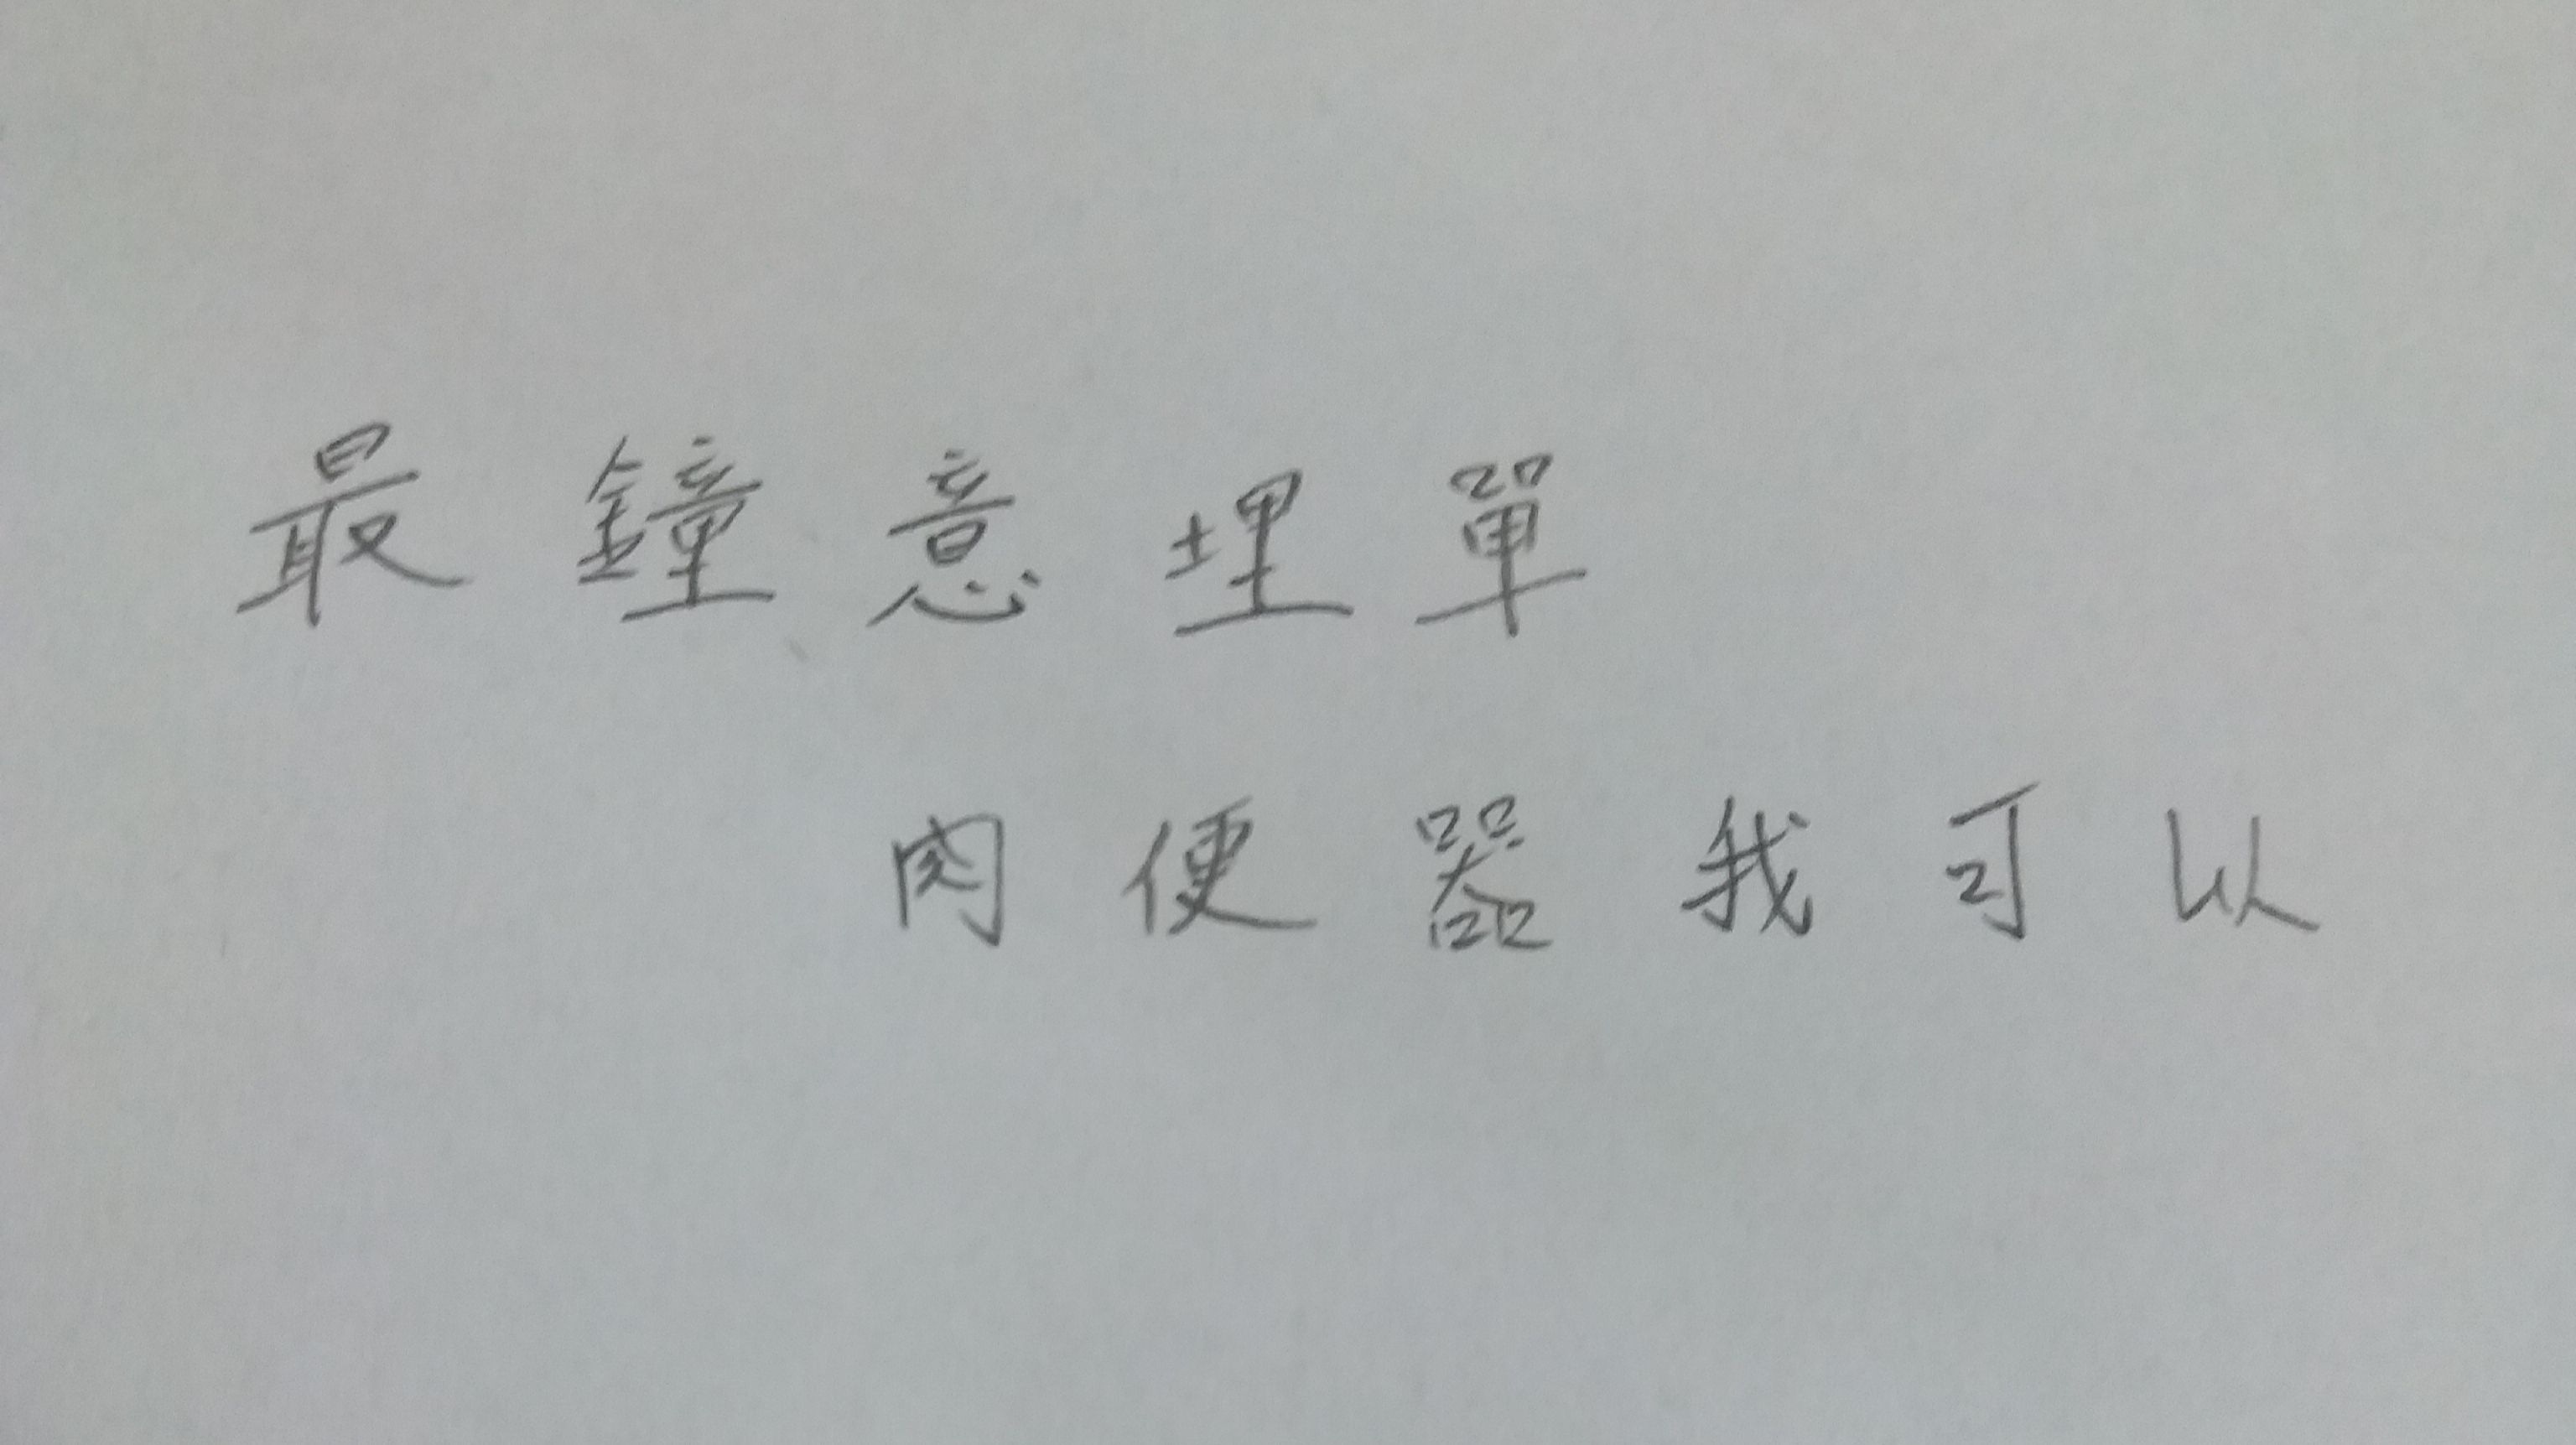 最鐘意埋單
肉便器我可以